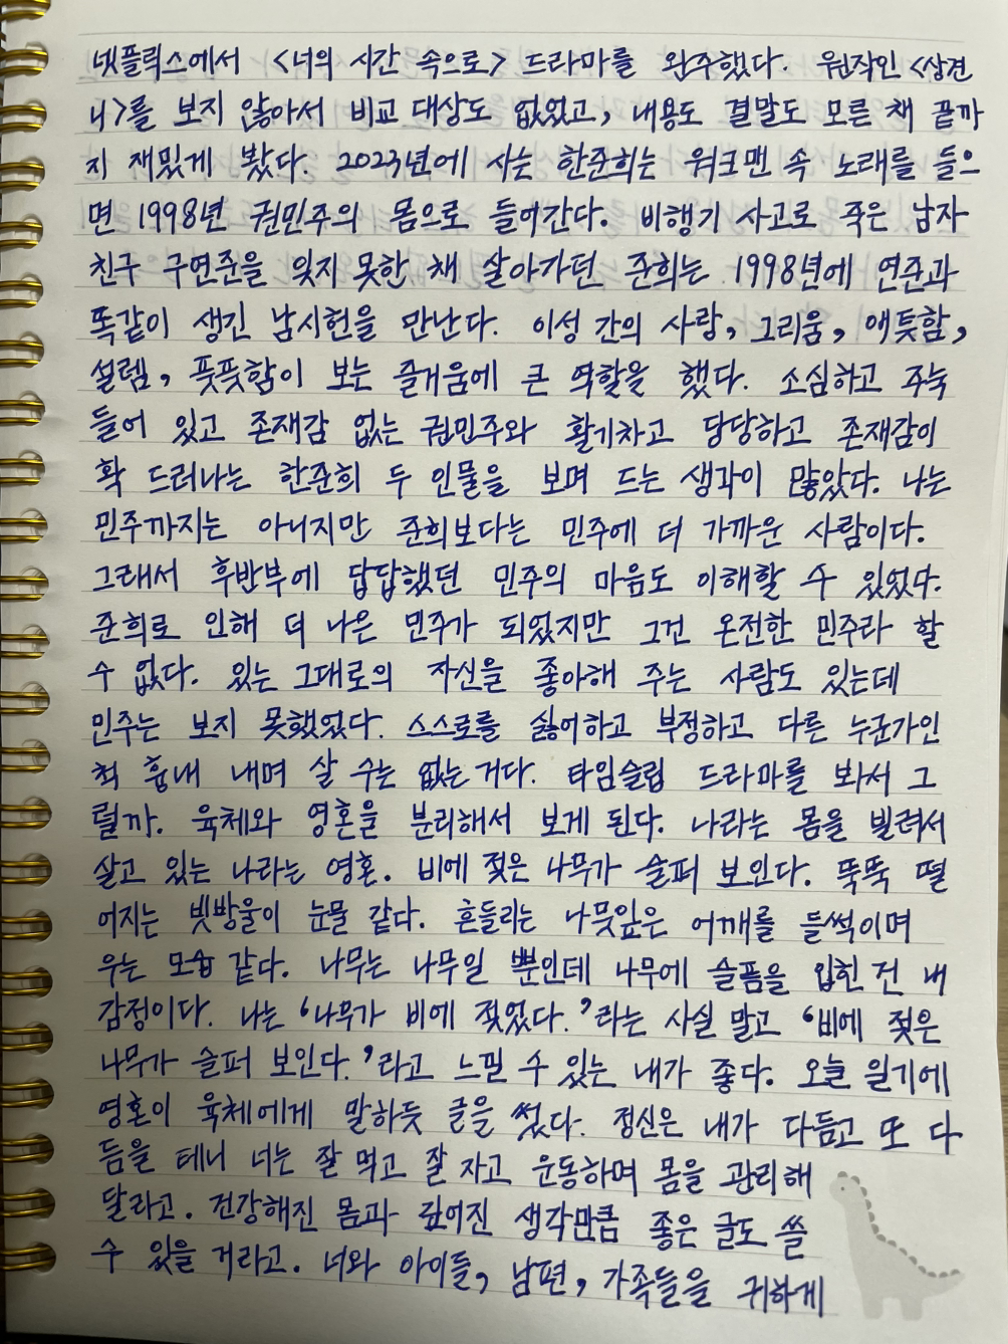 넷플릭스에서 <너의 시간 속으로> 드라마를 완주했다. 원작인 <상견
니>를 보지 않아서 비교 대상도 없었고, 내용도 결말도 모른 채 끝까
지 재밌게 봤다. 2023년에 사는 한준희는 워크맨 속 노래를 들으
면 1998년 권민주의 몸으로 들어간다. 비행기 사고로 죽은 남자
친구 구연준을 잊지 못한 채 살아가던 준희는 1998년에 연준과
똑같이 생긴 남시헌을 만난다. 이성 간의 사랑, 그리움, 애틋함,
설렘, 풋풋함이 보는 즐거움에 큰 역할을 했다. 소심하고 주눅
들어 있고 존재감 없는 권민주와 활기차고 당당하고 존재감이
확 드러나는 한준희 두 인물을 보며 드는 생각이 많았다. 나는
민주까지는 아니지만 준희보다는 민주에 더 가까운 사람이다.
그래서 후반부에 답답했던 민주의 마음도 이해할 수 있었다.
준희로 인해 더 나은 민주가 되었지만 그건 온전한 민주라 할
수 없다. 있는 그대로의 자신을 좋아해 주는 사람도 있는데
민주는 보지 못했었다. 스스로를 싫어하고 부정하고 다른 누군가인
척 흉내 내며 살 수는 없는 거다. 타임슬립 드라마를 봐서 그
럴까. 육체와 영혼을 분리해서 보게 된다. 나라는 몸을 빌려서
살고 있는 나라는 영혼. 비에 젖은 나무가 슬퍼 보인다. 뚝뚝 떨
어지는 빗방울이 눈물 같다. 흔들리는 나뭇잎은 어깨를 들썩이며
우는 모습 같다. 나무는 나무일 뿐인데 나무에 슬픔을 입힌 건 내
감정이다. 나는 '나무가 비에 젖었다.'라는 사실 말고 '비에 젖은
나무가 슬퍼 보인다.'라고 느낄 수 있는 내가 좋다. 오늘 일기에
영혼이 육체에게 말하듯 글을 썼다. 정신은 내가 다듬고 또 다
듬을 테니 너는 잘 먹고 잘 자고 운동하며 몸을 관리해
달라고. 건강해진 몸과 깊어진 생각만큼 좋은 글도 쓸
수 있을 거라고. 너와 아이들, 남편, 가족들을 귀하게